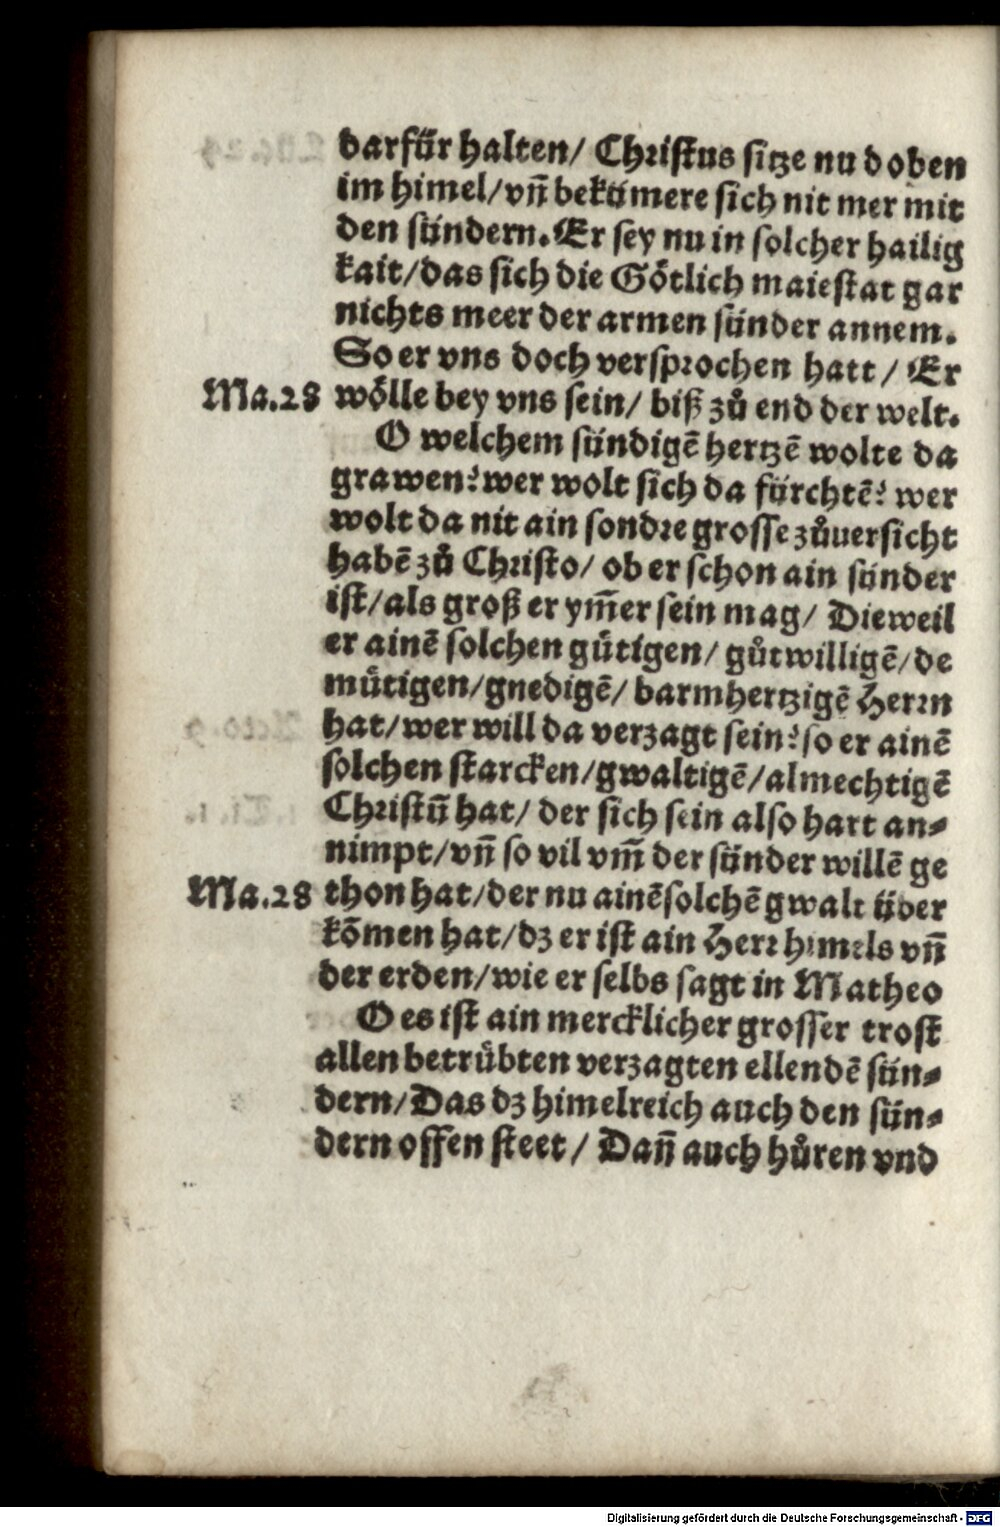 darfür halten/ Christus sitze nu doben
im himel/vñ bekümere sich nit mer mit
den sündern. Er sey nu in solcher hailig
kait/das sich die Götlich maiestat gar
nichts meer der armen sünder annem.
So er vns doch versprochen hatt/ Er
Ma.28 wölle bey vns sein/ biß zů end der welt.
O welchem sündigē hertzē wolte da
grawen? wer wolt sich da fürchtē? wer
wolt da nit ain sondre grosse zůuersicht
habē zů Christo/ ob er schon ain sünder
ist/als groß er ym̄er sein mag/ Dieweil
er ainē solchen gütigen/ gůtwilligē/de
mütigen/gnedigē/ barmhertzigē Herrn
hat/wer will da verzagt sein? so er ainē
solchen starcken/gwaltigē/almechtigē
Christū hat/ der sich sein also hart an-
nimpt/vñ so vil vm̄ der sünder willē ge
Ma.28 thon hat/der nu ainē solchē gwalt über
kōmen hat/dz er ist ain Herr himels vñ
der erden/wie er selbs sagt in Matheo
O es ist ain mercklicher grosser trost
allen betrübten verzagten ellendē sün-
dern/Das dz himelreich auch den sün-
dern offen steet/ Dañ auch hůren vnd
Digitalisierung gefördert durch die Deutsche Forschungsgemeinschaft - DFG